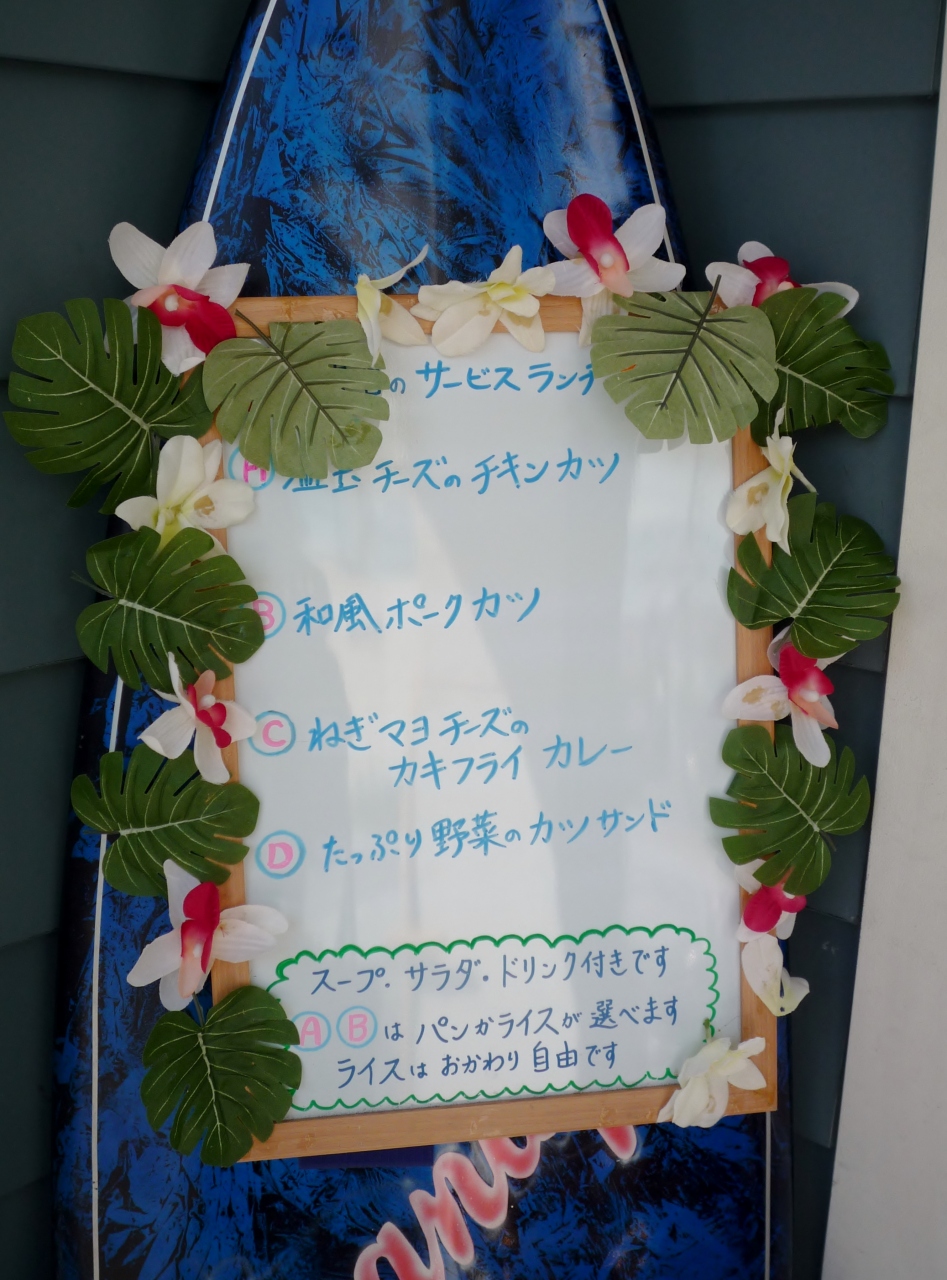 のサービスランチ
Ⓐ 温玉チーズのチキンカツ
Ⓑ 和風ポークカツ
Ⓒ ねぎマヨチーズの
カキフライ カレー
Ⓓ たっぷり野菜のカツサンド
スープ・サラダ・ドリンク付きです
Ⓐ Ⓑ は パンかライスが選べます
ライスは おかわり自由です